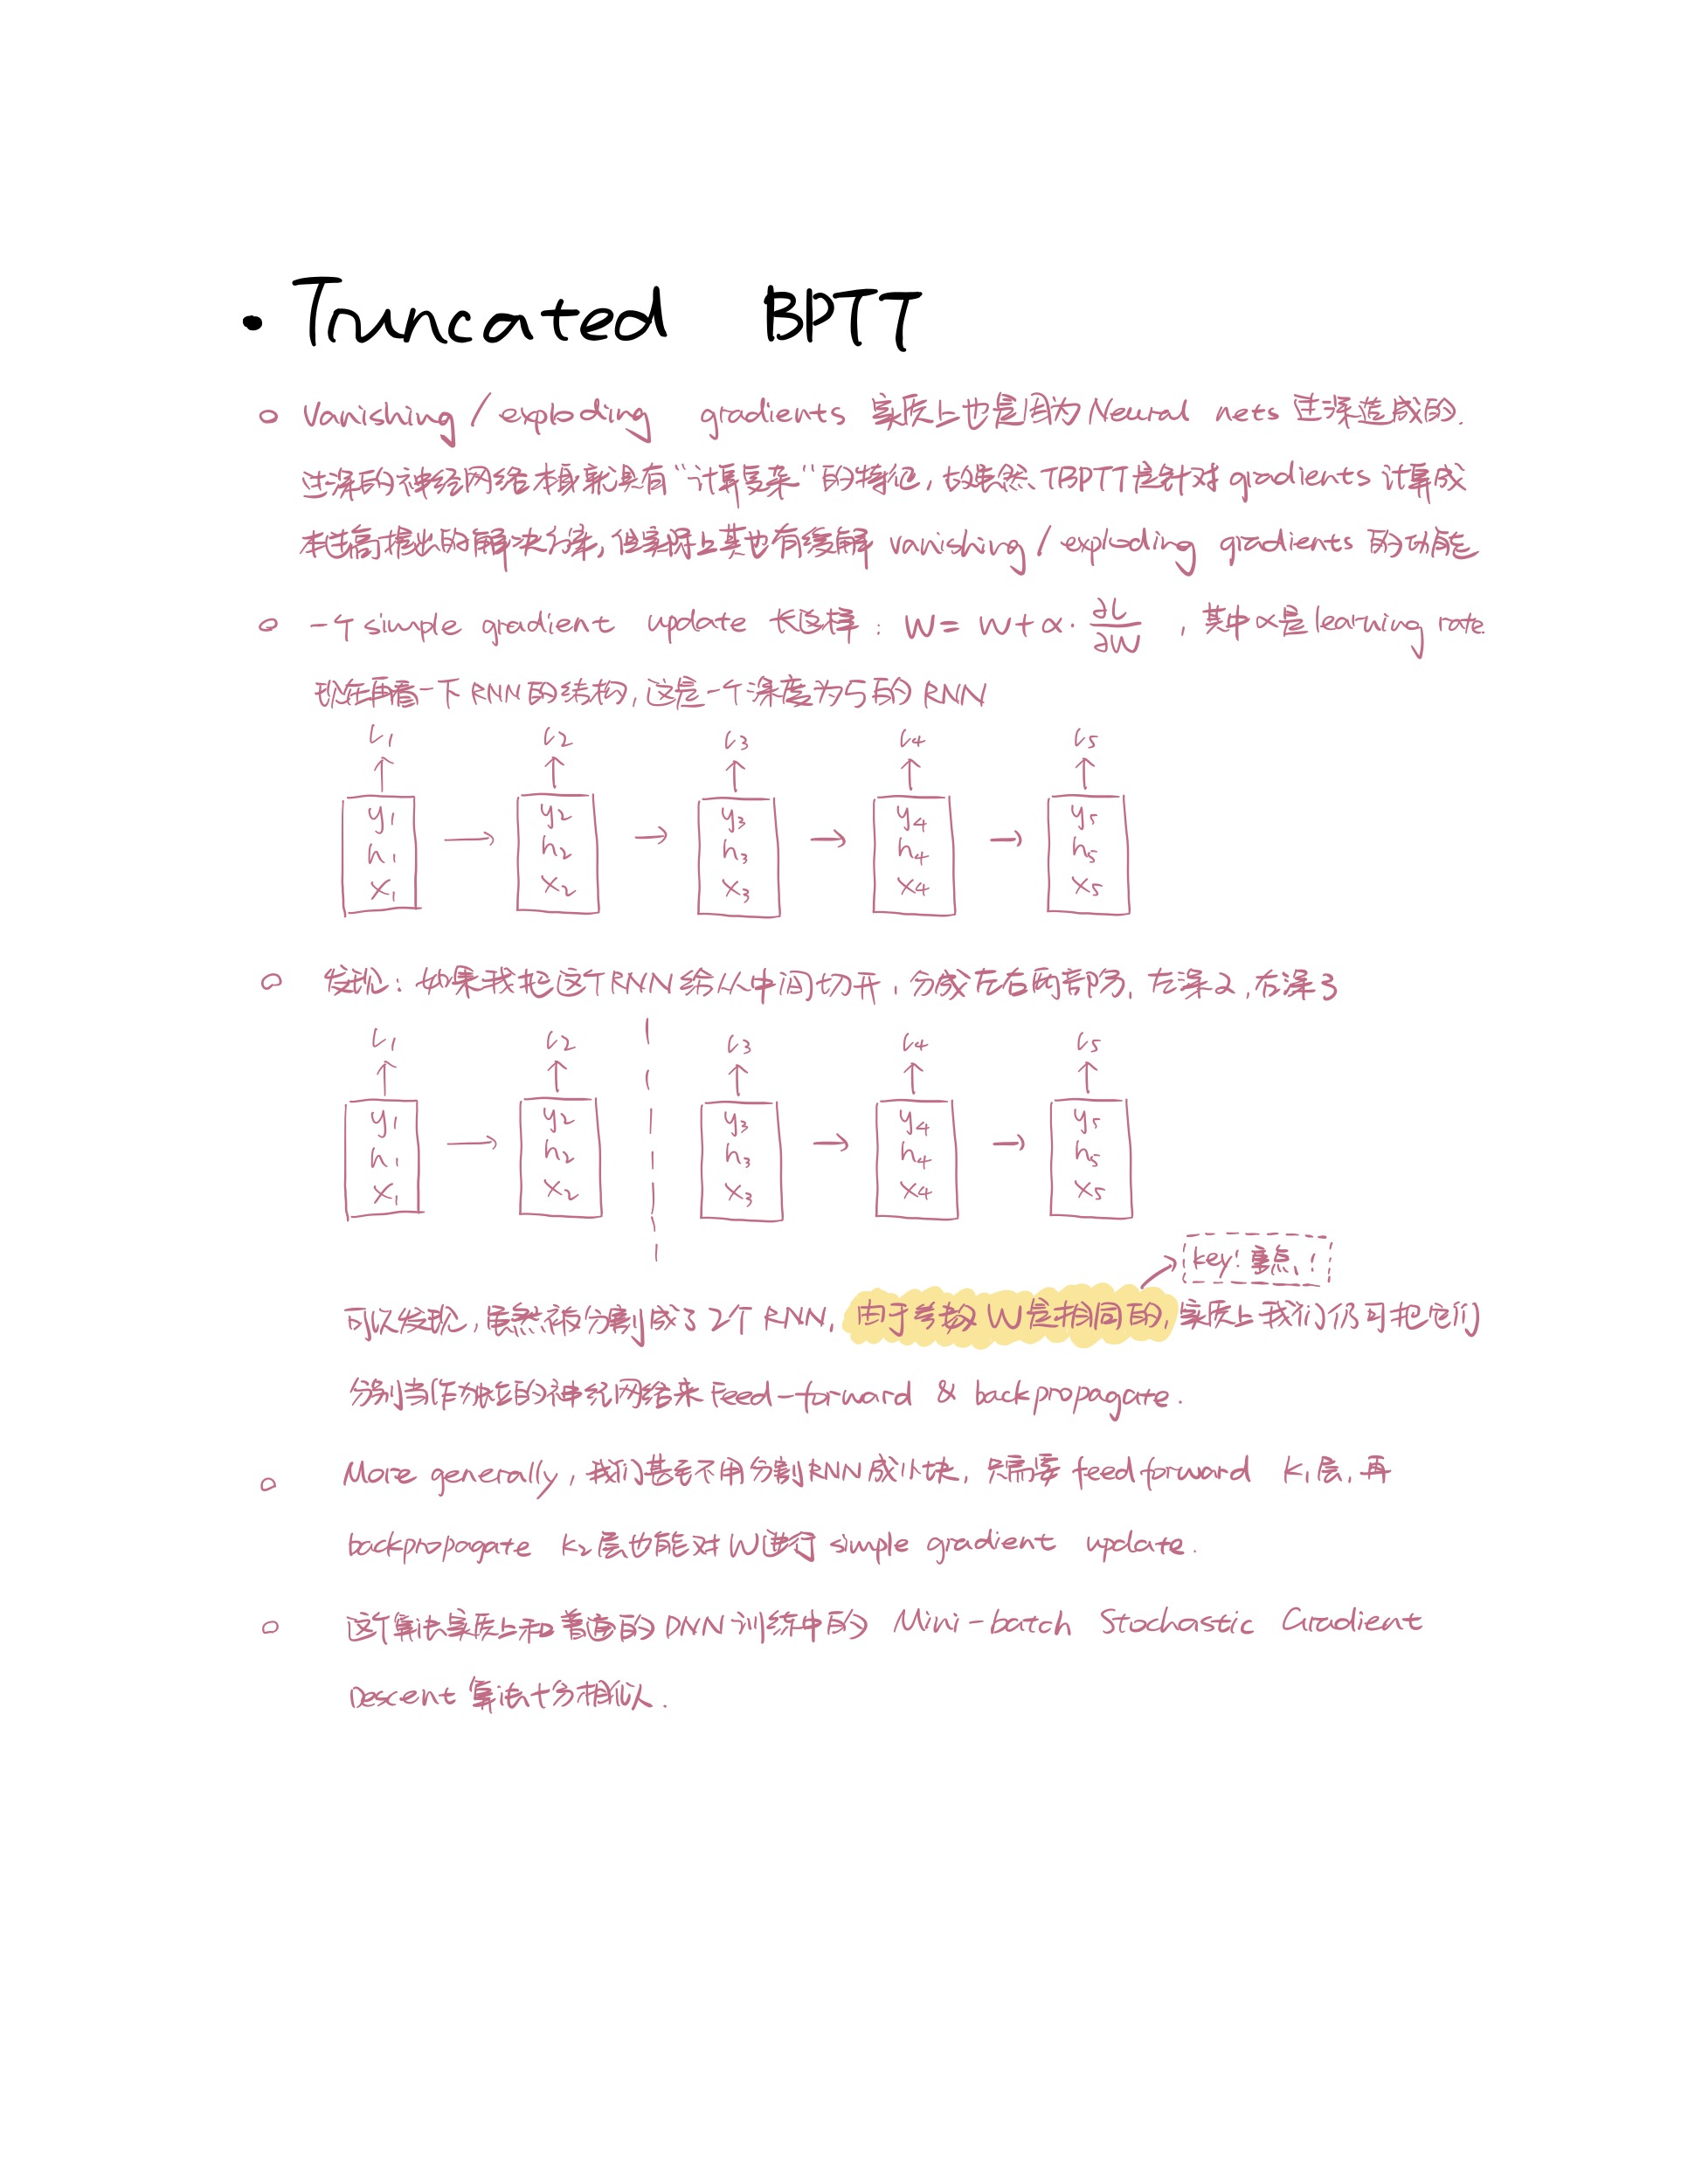 • Truncated BPTT
○ Vanishing / exploding gradients 实质上也是因为 Neural nets 过深造成的.
过深的神经网络本身就具有“计算复杂”的特征, 故虽然 TBPTT 是针对 gradients 计算成
本过高提出的解决方案, 但实际上其也有缓解 vanishing / exploding gradients 的功能
○ 一个 simple gradient update 长这样: W = W + α · ∂L/∂W , 其中 α 是 learning rate.
现在再看一下 RNN 的结构, 这是一个深度为 5 的 RNN
L1 L2 L3 L4 L5
↑ ↑ ↑ ↑ ↑
y1 y2 y3 y4 y5
h1 → h2 → h3 → h4 → h5
x1 x2 x3 x4 x5
○ 发现: 如果我把这个 RNN 给从中间切开, 分成左右两部分, 左深 2, 右深 3
L1 L2 L3 L4 L5
↑ ↑ ↑ ↑ ↑
y1 y2 y3 y4 y5
h1 → h2 h3 → h4 → h5
x1 x2 x3 x4 x5
key! 重点!
可以发现, 虽然被分割成了 2个 RNN, 由于参数 W 是相同的, 实质上我们仍可把它们
分别当作独立的神经网络来 Feed-forward & backpropagate.
○ More generally, 我们甚至不用分割 RNN 成小块, 只需要 feedforward K1 层, 再
backpropagate K2 层也能对 W 进行 simple gradient update.
○ 这个算法实质上和普通的 DNN 训练中的 Mini-batch Stochastic Gradient
Descent 算法十分相似.